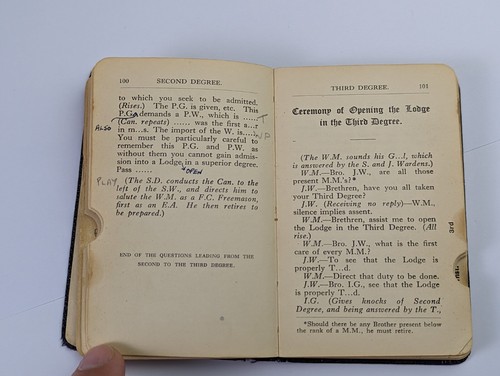 100 SECOND DEGREE.
to which you seek to be admitted.
(Rises.) The P.G. is given, etc. This
P.G. demands a P.W., which is ......T
(Can. repeats) ...... was the first a...r
ALSO
in m...s. The import of the W. is.....UP
You must be particularly careful to
remember this P.G. and P.W. as
without them you cannot gain admis-
sion into a Lodge, in a superior degree.
OPEN
Pass ......
PLAY (The S.D. conducts the Can. to the
left of the S.W., and directs him to
salute the W.M. as a F.C. Freemason,
first as an E.A. He then retires to
be prepared.)
END OF THE QUESTIONS LEADING FROM THE
SECOND TO THE THIRD DEGREE.
THIRD DEGREE. 101
Ceremony of Opening the Lodge
in the Third Degree.
(The W.M. sounds his G...l, which
is answered by the S. and J. Wardens.)
W.M.—Bro. J.W., are all those
present M.M.'s?*
J.W.—Brethren, have you all taken
your Third Degree?
J.W. (Receiving no reply)—W.M.,
silence implies assent.
W.M.—Brethren, assist me to open
the Lodge in the Third Degree. (All
rise.)
W.M.—Bro. J.W., what is the first
care of every M.M.?
J.W.—To see that the Lodge is
properly T...d.
W.M.—Direct that duty to be done.
J.W.—Bro. I.G., see that the Lodge
is properly T...d.
I.G. (Gives knocks of Second
Degree, and being answered by the T.,
*Should there be any Brother present below
the rank of a M.M., he must retire.
3rd